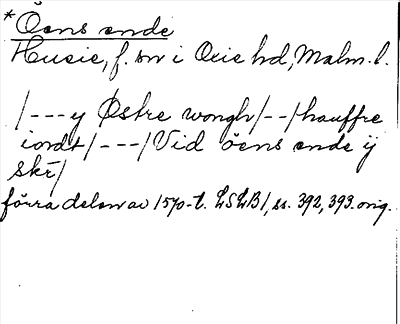 *Öens ende
Husie, f. sn i Oxie hd, Malm. l.
/---y Østre wongh/--/hauffre
iordt/---/Vid öens ende ij
skr/
förra delen av 1570-t. LSLB1, ss. 392, 393. orig.